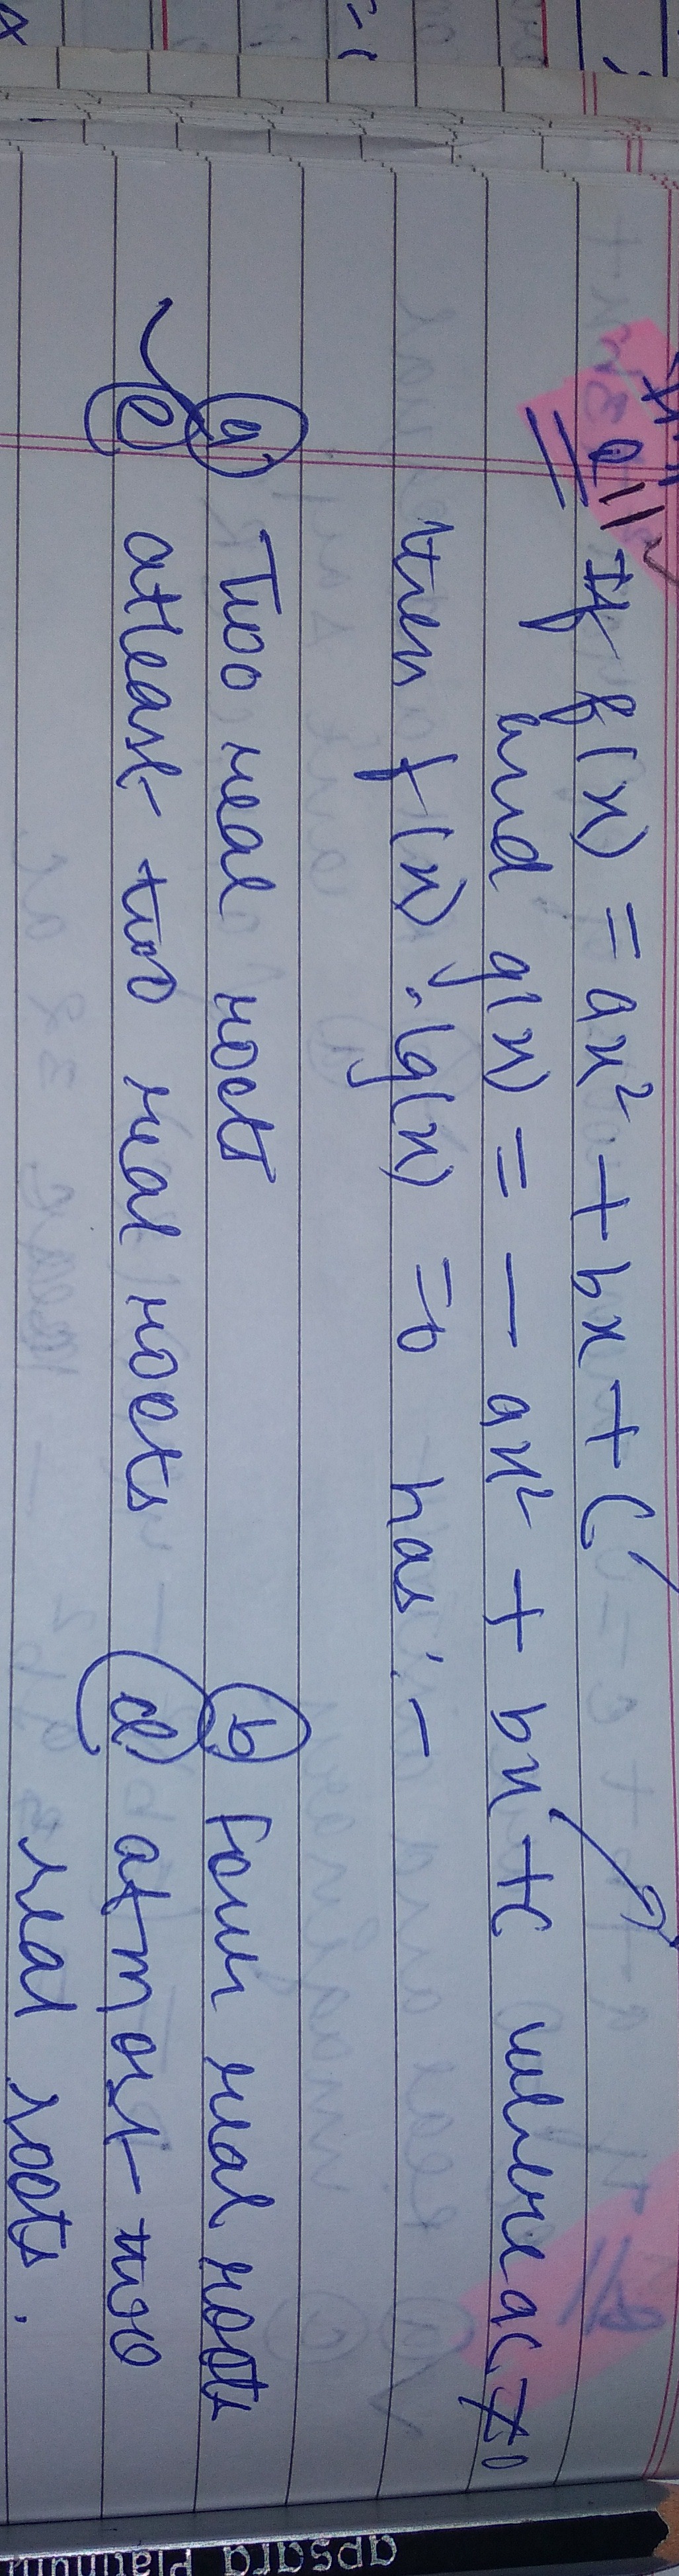 Q11 If f(x) = ax² + bx + c
and g(x) = - ax² + bx + c where ac ≠ 0
then f(x) . g(x) = 0 has :-
(a) Two real roots (b) Four real roots
(c) atleast two real roots (d) atmost two
real roots.
apsara Platinum